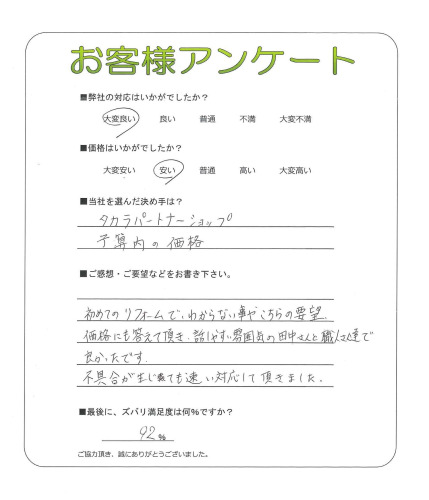 お客様アンケート
■弊社の対応はいかがでしたか？
大変良い 良い 普通 不満 大変不満
■価格はいかがでしたか？
大変安い 安い 普通 高い 大変高い
■当社を選んだ決め手は？
タカラパートナーショップ
予算内の価格
■ご感想・ご要望などをお書き下さい。
初めてのリフォームでわからない事やこちらの要望
価格にも答えて頂き、話しやすい雰囲気の田中さんと職人さん達で
良かったです。
不具合が生じても速い対応して頂きました。
■最後に、ズバリ満足度は何%ですか？
92%
ご協力頂き、誠にありがとうございました。